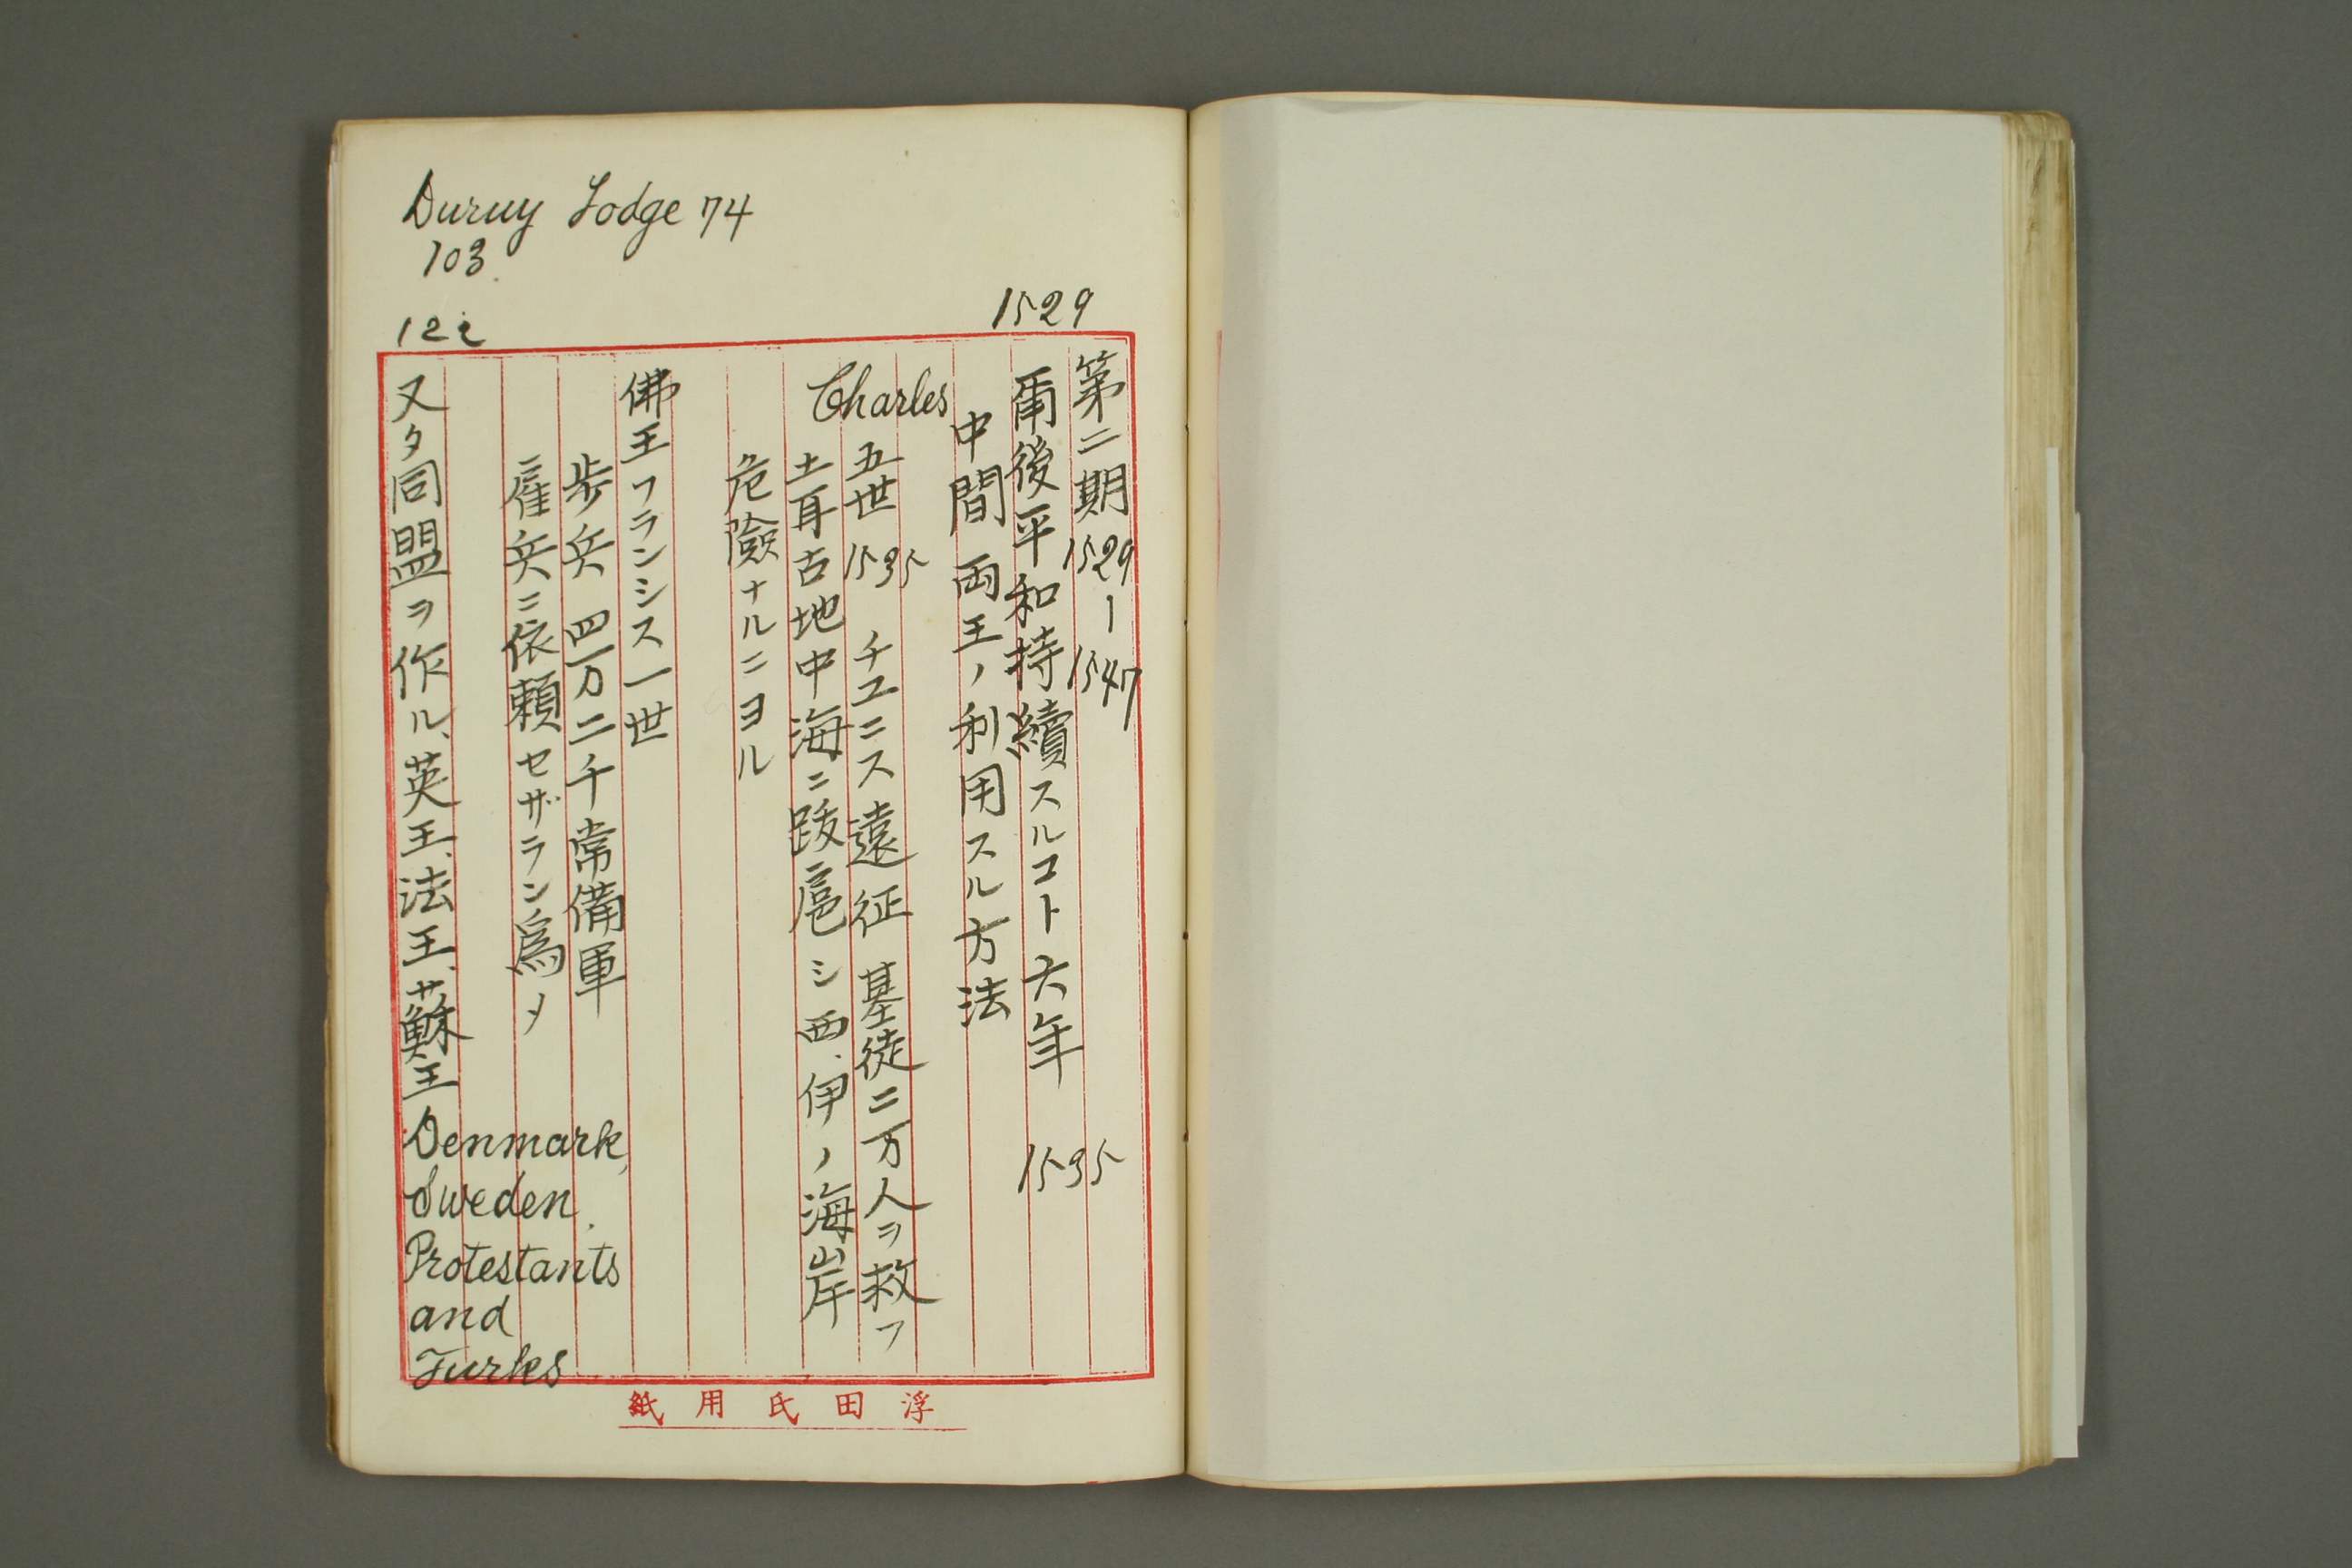 Duruy Lodge 74
103
122
1529
第二期 1529—1547
爾後平和持續スルコト六年 1535
中間 両王ノ利用スル方法
Charles 五世 1535 チユニス遠征 基徒二万人ヲ救フ
土耳古地中海ニ跋扈シ西、伊ノ海岸
危險ナルニヨル
佛王フランシス一世
歩兵 四万二千常備軍
雇兵ニ依頼セザラン為メ
又タ同盟ヲ作ル、英王、法王、蘇王
Denmark,
Sweden.
Protestants
and
Turks
浮田氏用紙